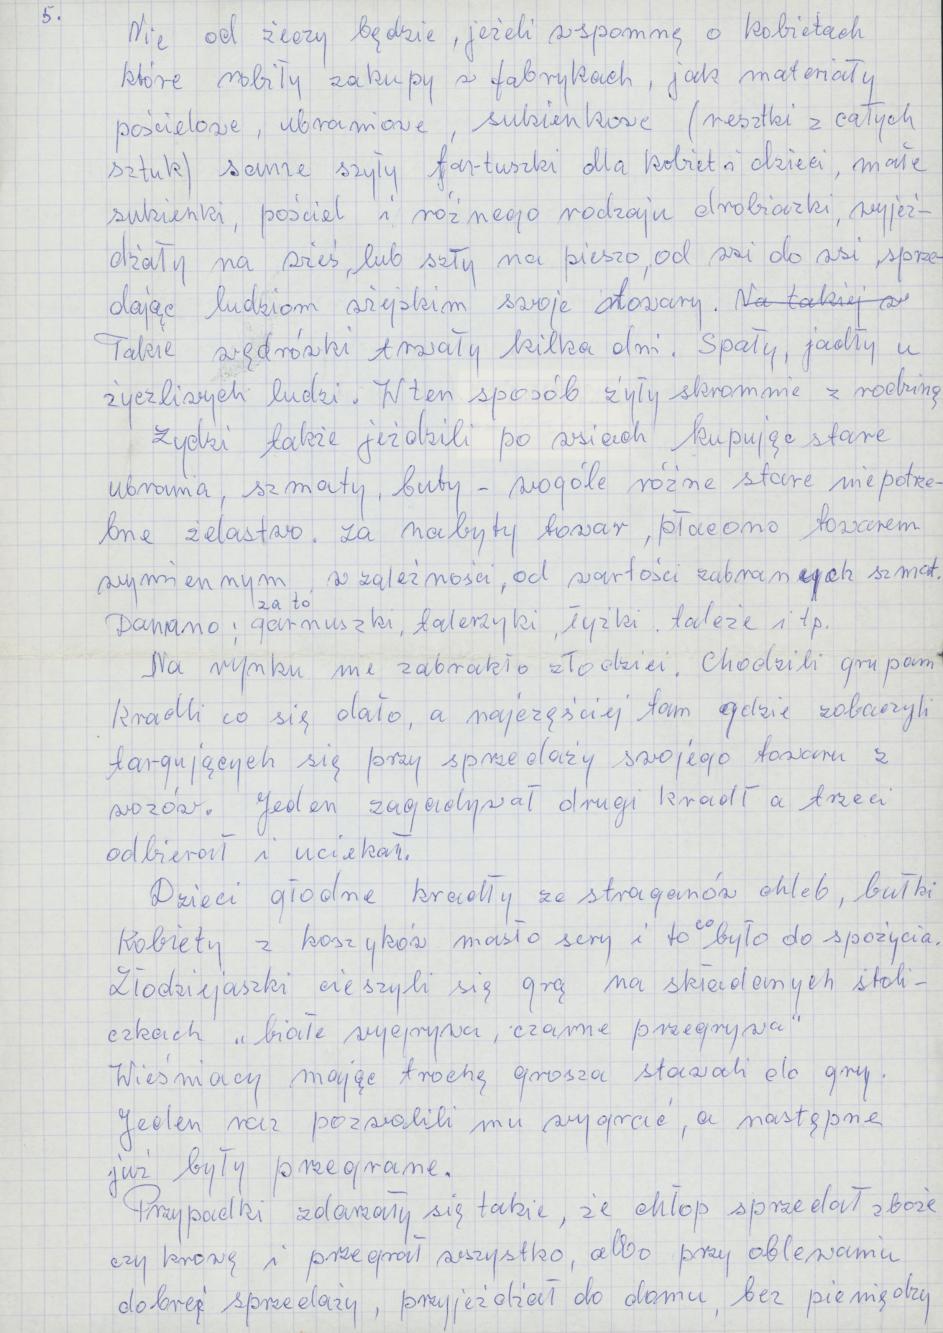 5.
Nie od żeczy będzie, jeżeli wspomnę o kobietach
które robiły zakupy w fabrykach, jak materiały
pościelowe, ubraniowe, sukienkowe (resztki z całych
sztuk) same szyły fartuszki dla kobiet i dzieci, małe
sukienki, pościel i róźnego rodzaju drobiazki, wyjeź-
dźały na wieś, lub szły na pieszo, od wsi do wsi, sprze-
dając ludziom wiejskim swoje towary. Na takiej w
Takie wędrówki trwały kilka dni. Spały, jadły u
życzliwych ludzi. W ten sposób żyły skromnie z rodziną
Żydzi takie jeździli po wsiach kupując stare
ubrania, szmaty, buty – wogóle różne stare niepotrze-
bne żelastwo. Za nabyty towar, płacono towarem
wymiennym, w zależności, od wartości zabranych szmat.
za to
Dawano; garnuszki, talerzyki, łyżki. taleźe i tp.
Na rynku nie zabrakło złodziei. Chodzili grupam
kradli co się dało, a najczęściej tam gdzie zobaczyli
targujących się przy sprzedaży swojego towaru z
wozów. Jeden zagadywał drugi kradł a trzeci
odbierał i uciekał.
Dzieci głodne kradły ze straganów chleb, bułki
Kobiety z koszyków masło sery i to co było do spożycia.
Złodziejaszki cieszyli się grą na składanych stoli-
czkach „białe wygrywa, czarne przegrywa"
Wieśniacy mając trochę grosza stawali do gry.
Jeden raz pozwolili mu wygrać, a następne
już były przegrane.
Przypadki zdarzały się takie, że chłop sprzedał zboże
czy krowę i przegrał wszystko, albo przy oblewaniu
dobrej sprzedaży, przyjeżdźał do domu, bez pieniędzy